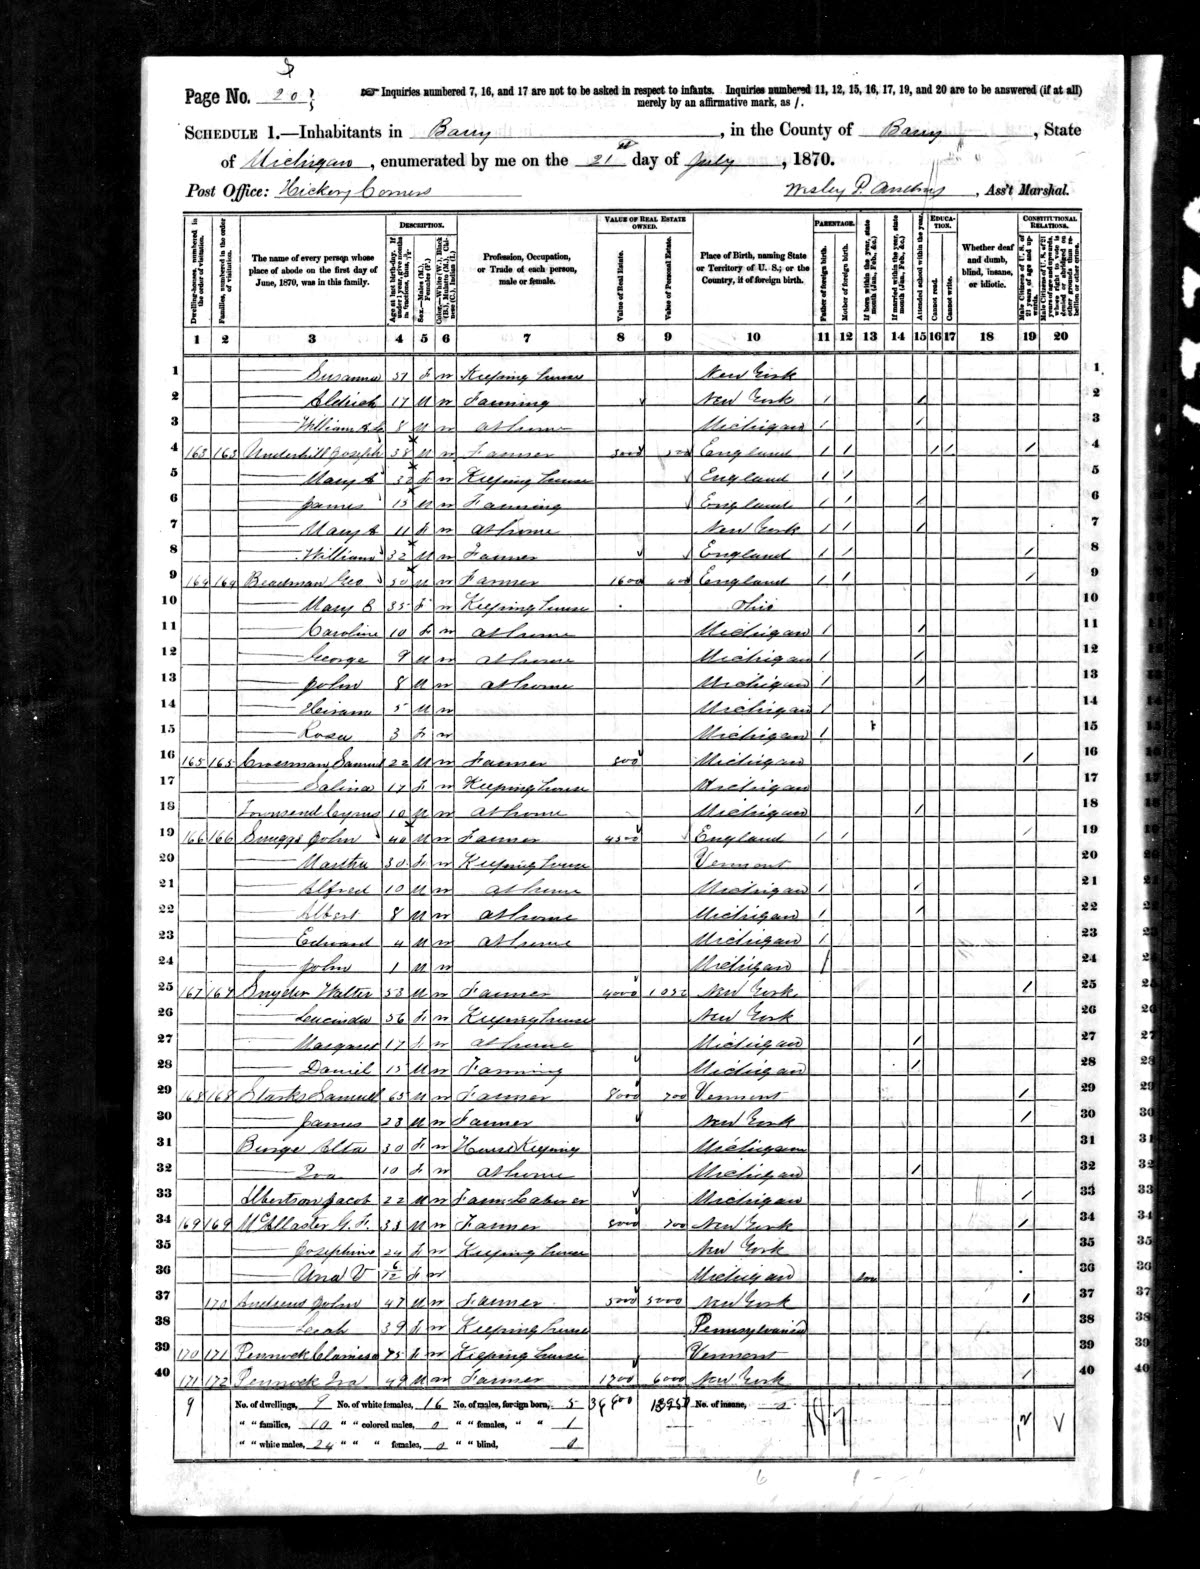 Page No. 20
Inquiries numbered 7, 16, and 17 are not to be asked in respect to infants. Inquiries numbered 11, 12, 15, 16, 17, 19, and 20 are to be answered (if at all)
merely by an affirmative mark, as /.
SCHEDULE 1.—Inhabitants in Barry, in the County of Barry, State
of Michigan, enumerated by me on the 21st day of July, 1870.
Post Office: Hickory Corners Ass't Marshal.
Dwelling-houses, numbered in the order of visitation. Families, numbered in the order of visitation. The name of every person whose place of abode on the first day of June, 1870, was in this family. DESCRIPTION. Age at last birth-day. If under 1 year, give months in fractions, thus, 3/12 Sex.—Males (M.), Females (F.) Color.—White (W.), Black (B.), Mulatto (M.), Chinese (C.), Indian (I.) Profession, Occupation, or Trade of each person, male or female. VALUE OF REAL ESTATE OWNED. Value of Real Estate. Value of Personal Estate. Place of Birth, naming State or Territory of U. S.; or the Country, if of foreign birth. PARENTAGE. Father of foreign birth. Mother of foreign birth. If born within the year, state month (Jan., Feb., &c.) If married within the year, state month (Jan., Feb., &c.) Attended school within the year. EDUCATION. Cannot read. Cannot write. Whether deaf and dumb, blind, insane, or idiotic. CONSTITUTIONAL RELATIONS. Male Citizens of U. S. of 21 years of age and upwards. Male Citizens of U. S. of 21 years of age and upwards, whose right to vote is denied or abridged on other grounds than rebellion or other crime.
1 2 3 4 5 6 7 8 9 10 11 12 13 14 15 16 17 18 19 20
1 — Susanna 57 F W Keeping house New York 1
2 — Aldrich 17 M W Farming New York / / 2
3 — William 8 M W at home Michigan / / 3
4 163 163 Underhill Joseph 38 M W Farmer 3000 England / / / / / 4
5 — Mary 32 F W Keeping house England / / 5
6 — James 15 M W Farming England / / / 6
7 — Mary A 11 F W at home New York / / / 7
8 — William 32 M W Farmer England / / / 8
9 164 164 Beadman Geo 50 M W Farmer 1600 400 England / / / 9
10 — Mary E 35 F W Keeping house Ohio 10
11 — Caroline 10 F W at home Michigan / / 11
12 — George 9 M W at home Michigan / / 12
13 — John 8 M W at home Michigan / / 13
14 — Hiram 5 M W Michigan / 14
15 — Rosa 3 F W Michigan / 15
16 165 165 Crossman Samul 22 M W Farmer 800 Michigan / 16
17 — Salina 17 F W Keeping house Michigan 17
18 Townsend Cyrus 10 M W at home Michigan / 18
19 166 166 Snuggs John 40 M W Farmer 4500 England / / / 19
20 — Martha 30 F W Keeping house Vermont 20
21 — Alfred 10 M W at home Michigan / / 21
22 — Albert 8 M W at home Michigan / / 22
23 — Edward 4 M W at home Michigan / 23
24 — John 1 M W Michigan / 24
25 167 167 Snyder Walter 53 M W Farmer 4000 New York / 25
26 — Leucinda 56 F W Keeping house New York 26
27 — Margaret 17 F W at home Michigan / 27
28 — Daniel 15 M W Farming Michigan / 28
29 168 168 Starks Samuel 65 M W Farmer 8000 700 Vermont / 29
30 — James 23 M W Farmer New York / 30
31 Burge Alta 30 F W House Keeping Michigan 31
32 — Iva 10 F W at home Michigan / 32
33 Albertson Jacob 22 M W Farm Laborer Michigan / 33
34 169 169 McAllaster G. F. 33 M W Farmer 5000 700 New York / 34
35 — Josephine 24 F W Keeping house New York 35
36 — Una V 6/12 F W Michigan 36
37 170 Andrews John 47 M W Farmer 5000 5000 New York / 37
38 — Leah 39 F W Keeping house Pennsylvania 38
39 170 171 Pennock Clarrisa 75 F W Keeping house Vermont 39
40 171 172 Pennock Ira 49 M W Farmer 1700 6000 New York / 40
9 No. of dwellings, 9 No. of white females, 16 No. of males, foreign born, 5 No. of insane, 0
" " families, 10 " " colored males, 0 " " females, " " 1
" " white males, 24 " " " females, 0 " " blind, 0